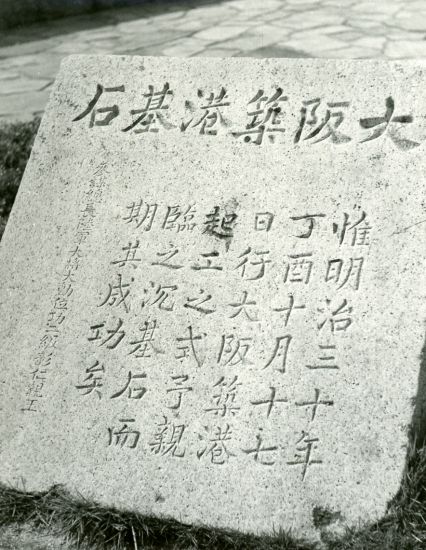 大阪築港基石
惟明治三十年
丁酉十月十七
日行大阪築港
起工之式予親
臨之沉基石而
期其成功矣
參謀總長陸軍大將大勲位功二級彰仁親王